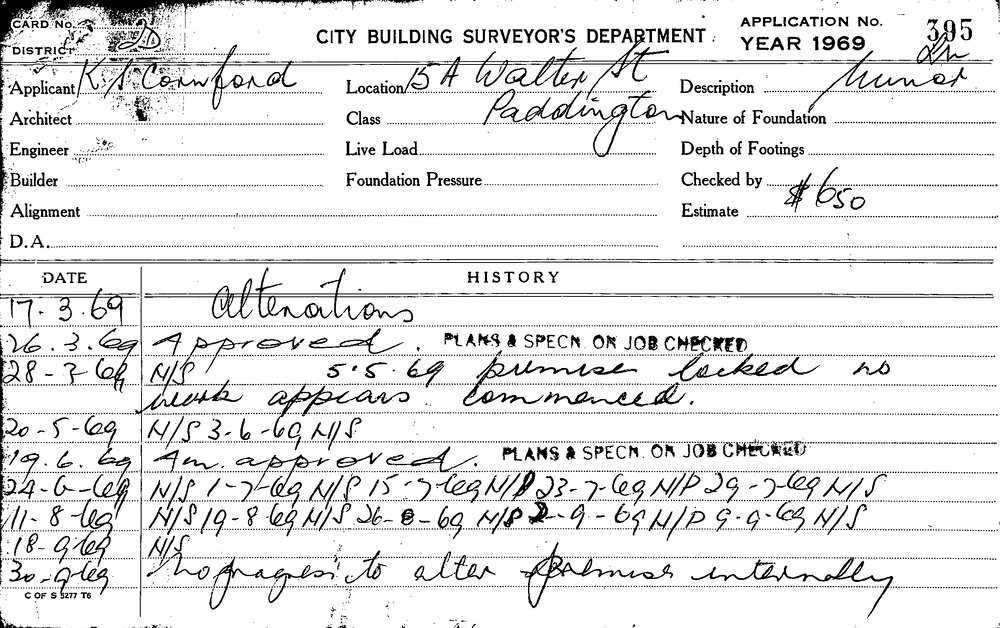 CARD No.
CITY BUILDING SURVEYOR'S DEPARTMENT
APPLICATION No. 395
DISTRICT 2D
YEAR 1969
Applicant K S Cornford
Location 15A Walter St
Description Minor
Architect
Class Paddington
Nature of Foundation
Engineer
Live Load
Depth of Footings
Builder
Foundation Pressure
Checked by
Alignment
Estimate $650
D.A.
DATE HISTORY
17.3.69 Alterations
26.3.69 Approved. PLANS & SPECN. ON JOB CHECKED
28-3-69 N/S 5.5.69 premises locked no
work appears commenced.
20-5-69 N/S 3-6-69 N/S
19.6.69 Am. approved. PLANS & SPECN. ON JOB CHECKED
24-6-69 N/S 1-7-69 N/S 15-7-69 N/P 23-7-69 N/P 29-7-69 N/S
11-8-69 N/S 19-8-69 N/S 26-8-69 N/P 2-9-69 N/P 9-9-69 N/S
18-9-69 N/S
30-9-69 No progress to alter premises internally
C OF S 5277 T6